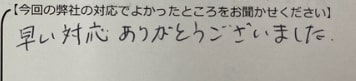 【今回の弊社の対応でよかったところをお聞かせください】
早い対応ありがとうございました.